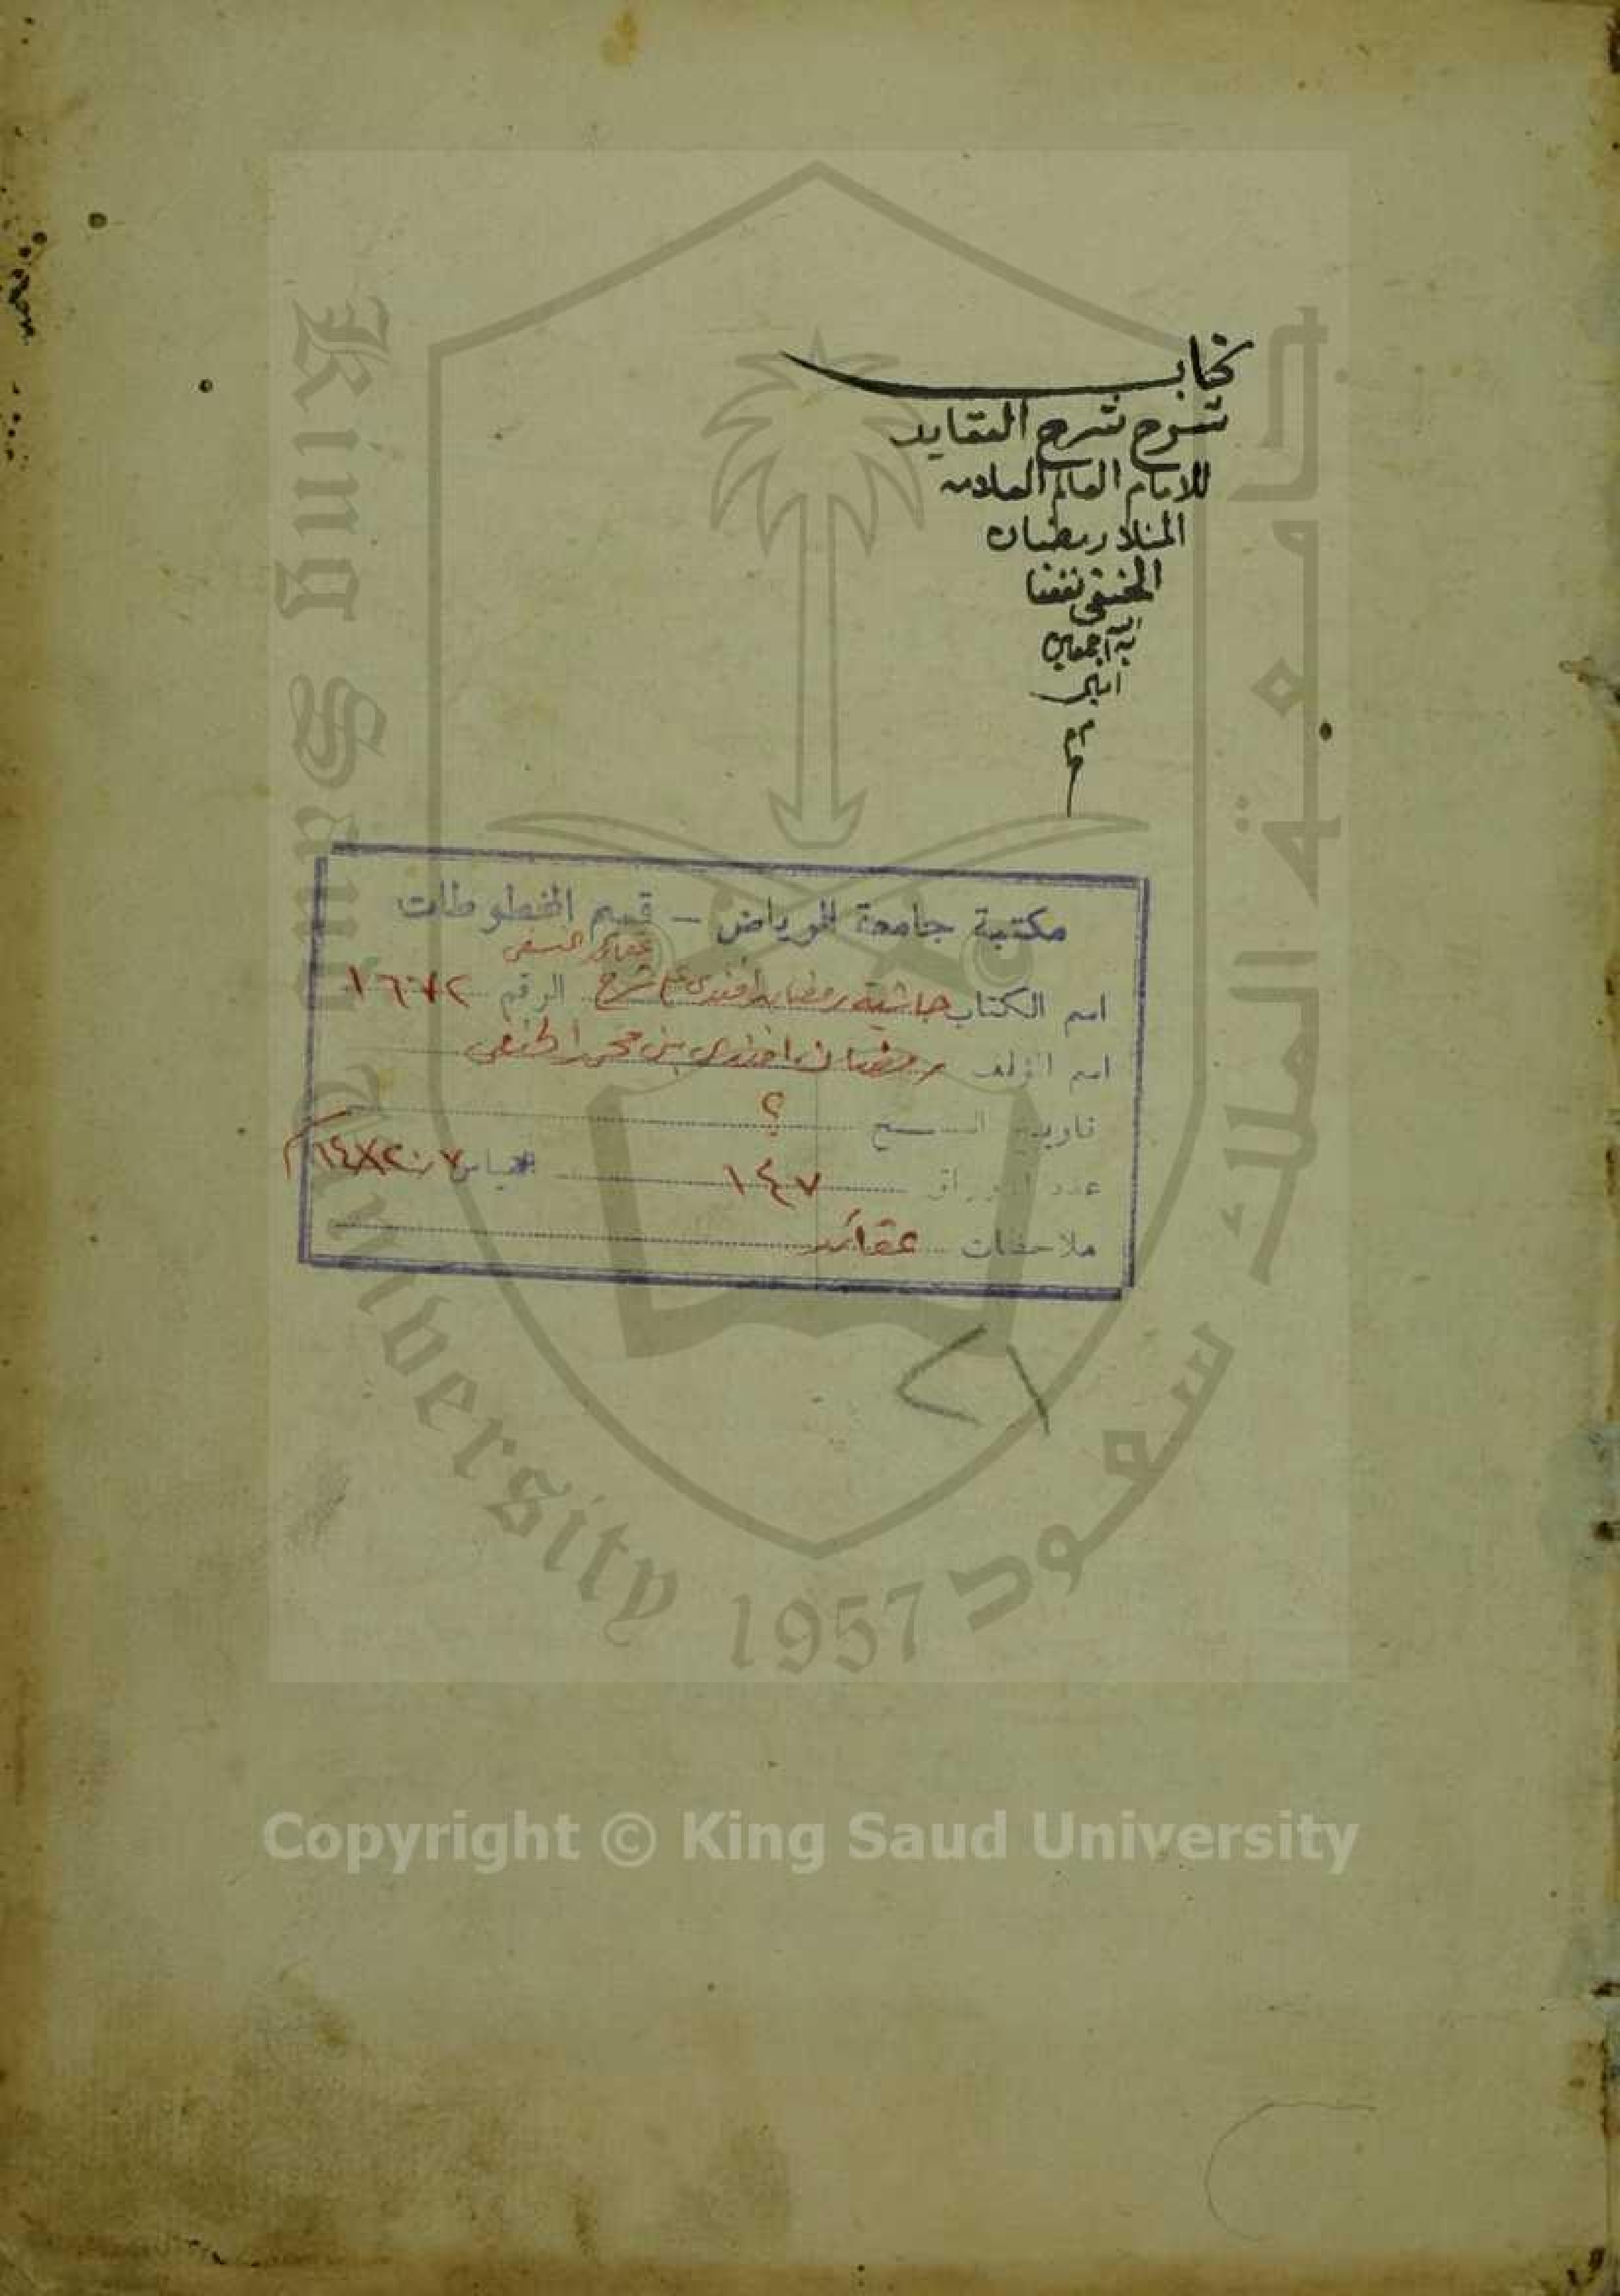 كتاب
شرح شرح العقايد
للامام العالم العلامه
المنلا رمضان
الحنفي نفعنا
به اجمعين
امين
م م
مكتبة جامعة الرياض - قسم المخطوطات
عقائد النسفي
اسم الكتاب حاشية رمضان افندي على شرح الرقم ١٦٧٢
اسم المؤلف رمضان افندي بن محمد الحنفي
تاريخ النسخ ؟
عدد الأوراق ١٤٧ القياس
ملاحظات عقائد
King Saud University 1957
جامعة الملك سعود
Copyright © King Saud University